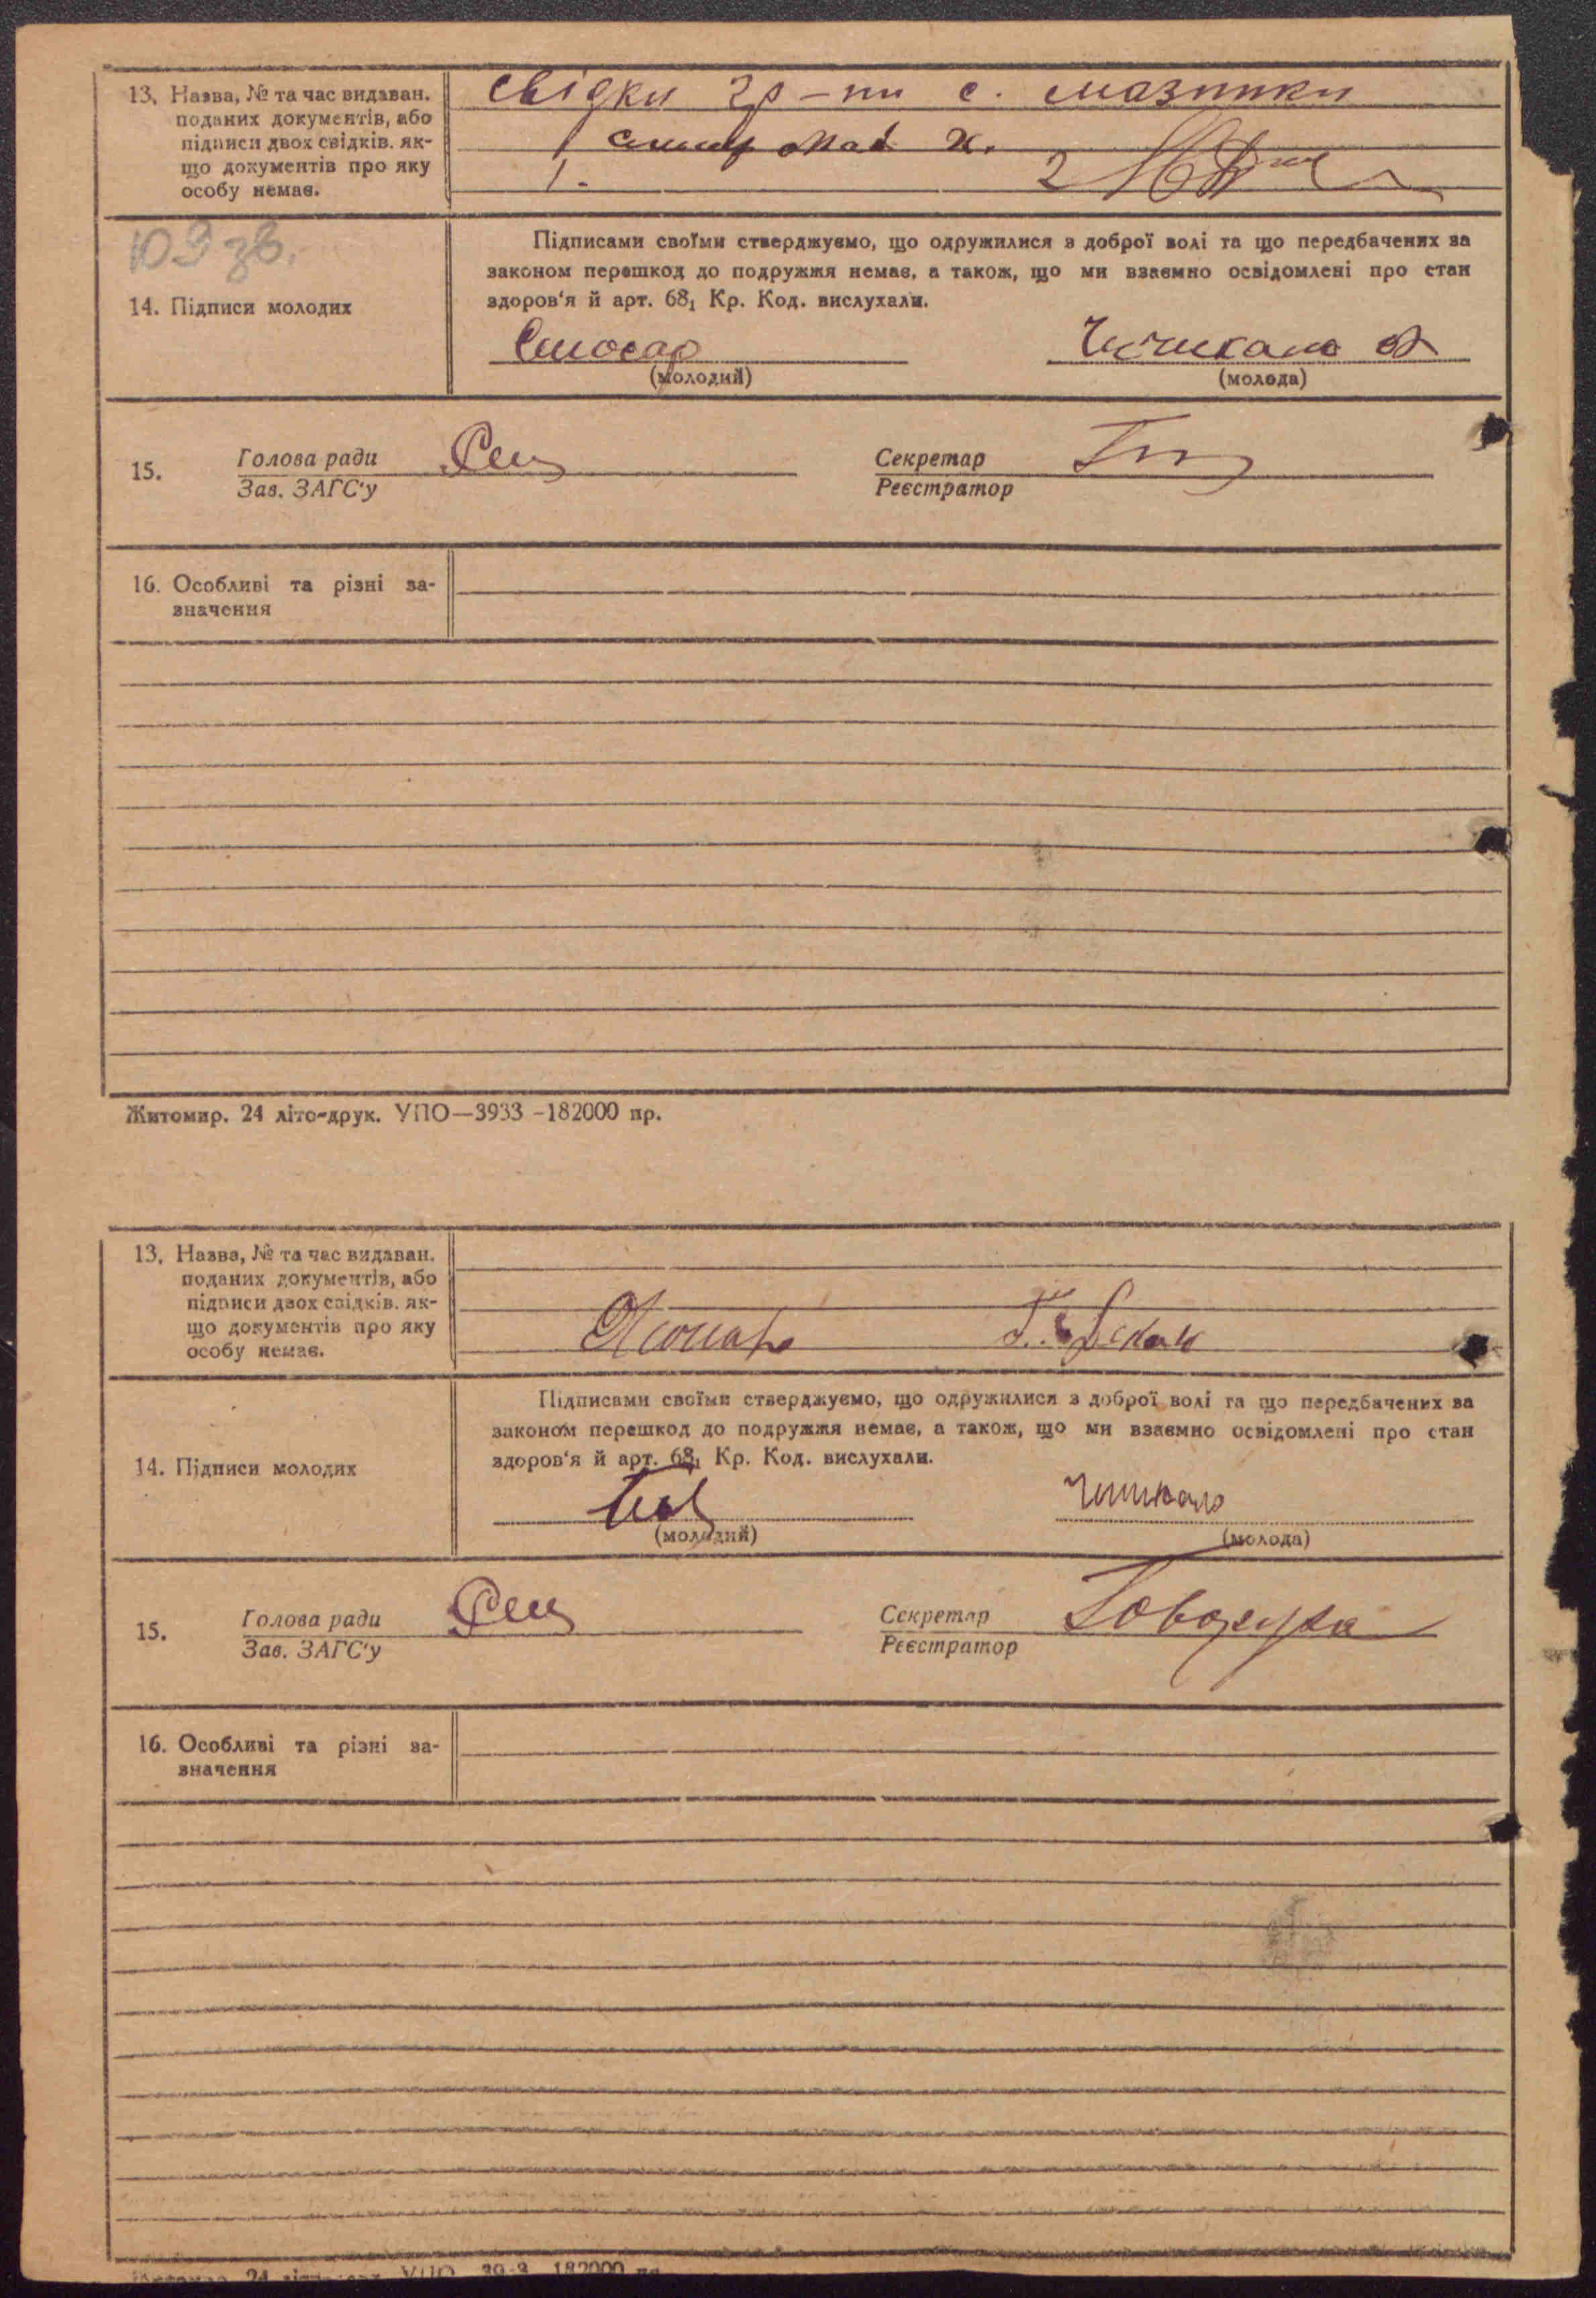 13. Назва, № та час видаван.
поданих документів, або
підписи двох свідків. як-
що документів про яку
особу немає.
свідки гр-ни с. мазинки
1
1.
2
14. Підписи молодих
Підписами своїми стверджуємо, що одружилися з доброї волі та що передбачених за
законом перешкод до подружжя немає, а також, що ми взаємно освідомлені про стан
здоров'я й арт. 68₁ Кр. Код. вислухали.
Слюсар
(молодий)
(молода)
15.
Голова ради
Зав. ЗАГС'у
Секретар
Реєстратор
16. Особливі та різні за-
значення
Житомир. 24 літо-друк. УПО—3933 -182000 пр.
13. Назва, № та час видаван.
поданих документів, або
підписи двох свідків. як-
що документів про яку
особу немає.
14. Підписи молодих
Підписами своїми стверджуємо, що одружилися з доброї волі та що передбачених за
законом перешкод до подружжя немає, а також, що ми взаємно освідомлені про стан
здоров'я й арт. 68₁ Кр. Код. вислухали.
(молодий)
(молода)
15.
Голова ради
Зав. ЗАГС'у
Секретар
Реєстратор
16. Особливі та різні за-
значення